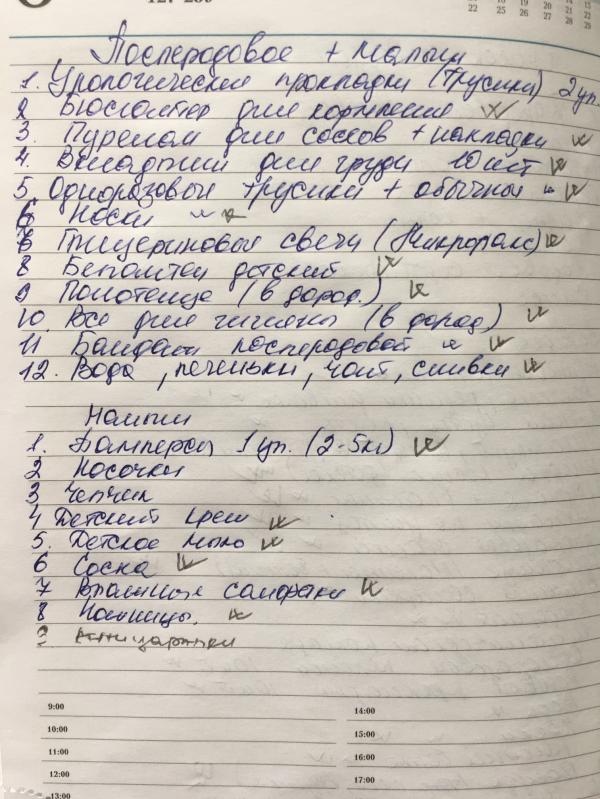 22 19 20 21
26 27 28
Послеродовое + Малыш
1. Урологические прокладки (трусики) 2 уп.
2 Бюстгалтер для кормления
3. Пурелан для сосков + накладки
4. Вкладыши для груди 10 шт
5. Одноразовые трусики + обычные
6 Носки
7 Глицериновые свечи (Микролакс)
8 Бепантен детский
9 Полотенце (в дород.)
10. Все для гигиены (в дород)
11 Бандаж послеродовой
12. Вода, печеньки, чай, сливки
Малыш
1. Памперсы 1 уп. (2-5кг)
2 Носочки
3 Чепчик
4 Детский крем
5. Детское мыло
6 Соска
7 Влажные салфетки
8 Ножницы.
9 Антицарапки
9:00 14:00
10:00 15:00
11:00 16:00
12:00 17:00
13:00